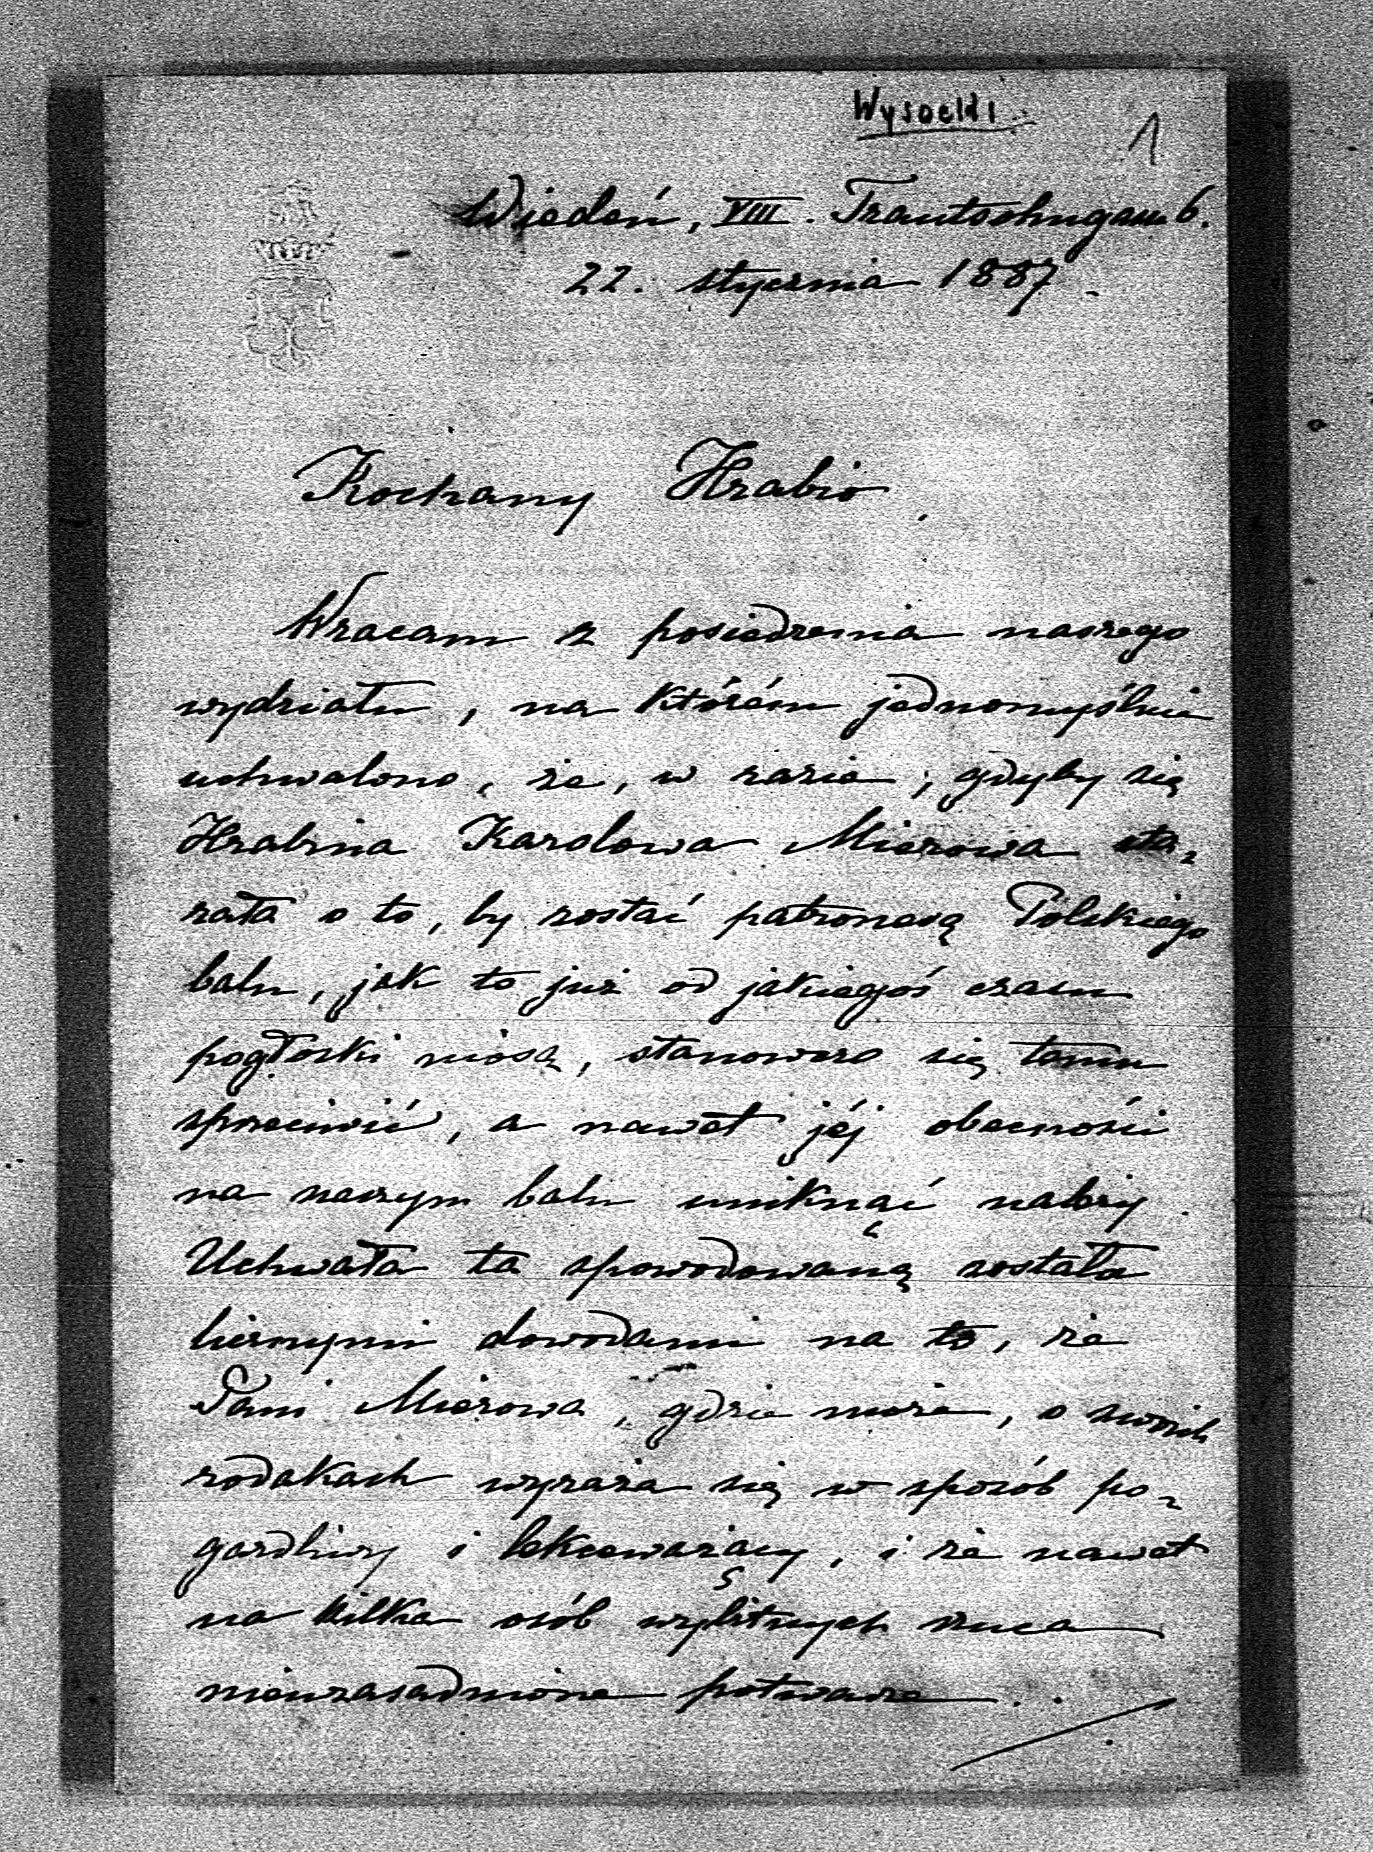 Wysocki
1
Wiedeń, VIII. Trautsohngasse 6.
22. stycznia 1887.
Kochany Hrabio,
Wracam z posiedzenia naszego
wydziału, na którém jednomyślnie
uchwalono, że, w razie, gdyby się
Hrabina Karolowa Mierowa sta-
rała o to, by zostać patronesą Polskiego
balu, jak to już od jakiegoś czasu
pogłoski niosą, stanowczo się temu
sprzeciwić, a nawet jéj obecności
na naszym balu uniknąć należy.
Uchwała ta spowodowaną została
licznymi dowodami na to, że
Pani Mierowa, gdzie może, o swoich
rodakach wyraża się w sposób po-
gardliwy i lekceważący, i że nawet
na kilka osób wybitnych rzuca
nieuzasadnione potwarze...